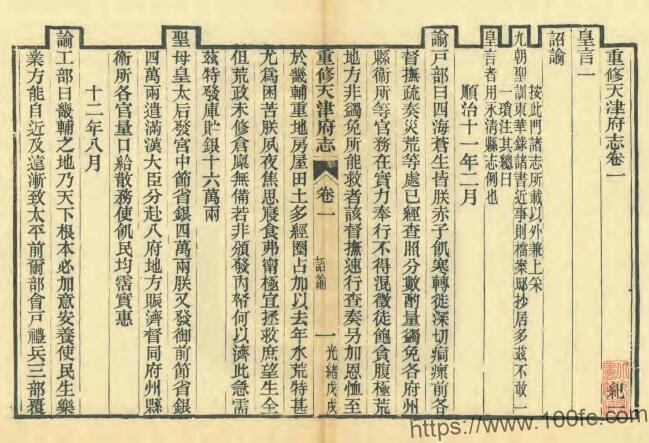 重修天津府志卷一
紀一
皇言一
詔諭
按此門諸志所載以外兼上采
九朝聖訓東華錄諸書近事則檔案邸抄居多茲不敢一
一瑣注其總曰
皇言者用永清縣志例也
順治十一年二月
諭戶部曰四海蒼生皆朕赤子飢寒轉徙深切痌瘝前各
督撫疏奏災荒等處已經查照分數酌量蠲免各府州
縣衛所等官務在實力奉行不得混徵徒飽貪腹極荒
地方非蠲免所能救者該督撫速行查奏另加恩恤至
重修天津府志
卷一
詔諭
一
光緒戊戌
於畿輔重地房屋田土多經圈占加以去年水荒特甚
尤爲困苦朕夙夜焦思寢食弗甯極宜拯救庶望生全
但荒政未修倉廩無備若非頒發內帑何以濟此急需
茲特發庫貯銀十六萬兩
聖母皇太后發宮中節省銀四萬兩朕又發御前節省銀
四萬兩遣滿漢大臣分赴八府地方賑濟督同府州縣
衛所各官量口給散務使飢民均霑實惠
十二年八月
諭工部曰畿輔之地乃天下根本必加意安養使民生樂
業方能自近及遠漸致太平前爾部會戶禮兵三部覆
https://www.100fe.com